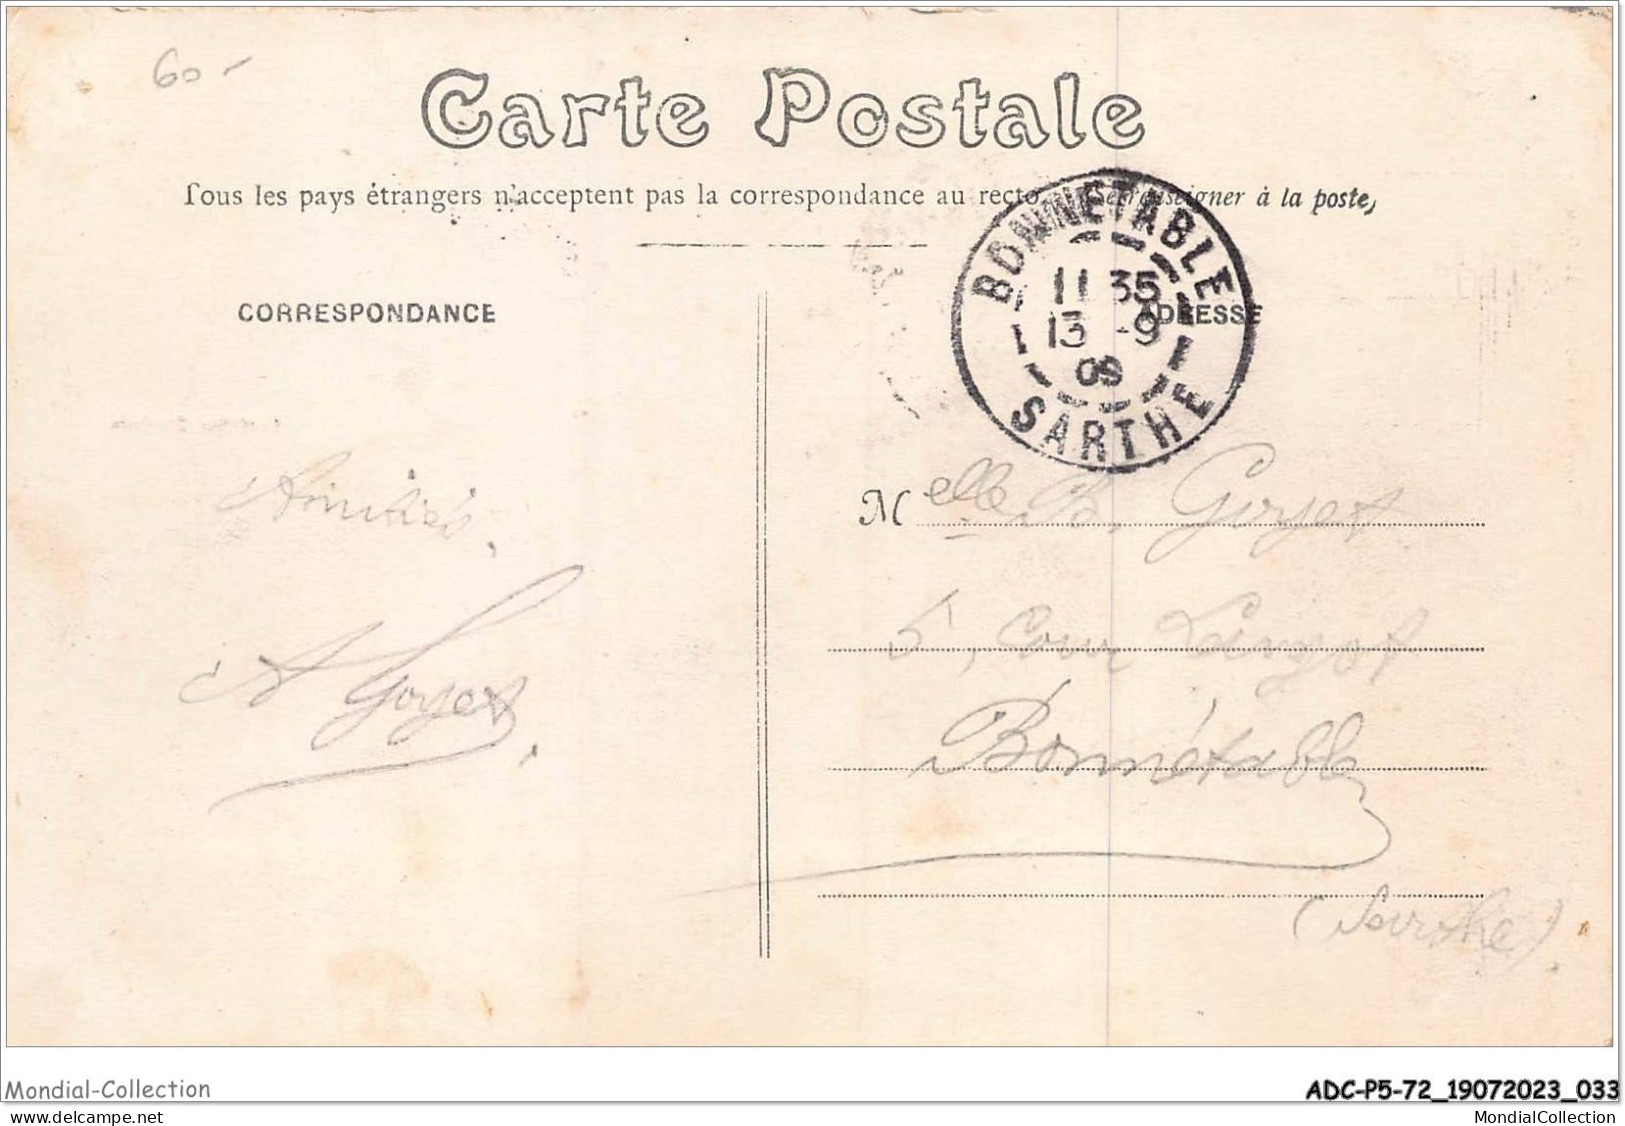 60-
Carte Postale
Tous les pays étrangers n'acceptent pas la correspondance au recto à la poste,
BONNETABLE
11 35
13 -9
09
SARTHE
CORRESPONDANCE
ADRESSE
Amitiés.
A Goyet
Melle B. Goyet
5, Cour
Bonnétable
(Sarthe)
Mondial-Collection
ADC-P5-72_19072023_033
www.delcampe.net
MondialCollection